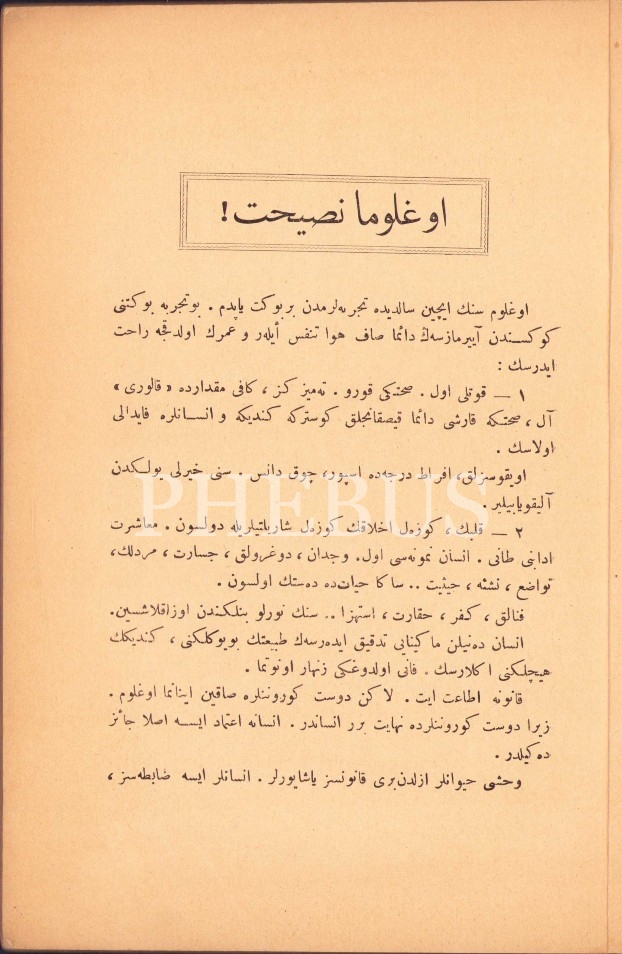 اوغلوما نصيحت!
اوغلوم سنك ايچين سالديده تجربه‌لرمدن بربوكت ياپدم . بوتجربه بوكتنى
كوكسندن آييرمازسەڭ دائما صاف هوا تنفس أيلەر و عمرك اولدقجه راحت
ايدرسك :
١ — قوتلى اول . صحتكى قورو . تەميز كز ، كافى مقدارده «قالورى»
آل ، صحتكه قارشى دائما قيصقانجلق كوستركه كنديكه و انسانلره فايدالى
اولاسك .
اويقوسزلق، افراط درجەده اسپور، چوق دانس . سنى خيرلى يولكدن
آليقويابيلير .
٢ — قلبك ، كوزەل اخلاقك كوزەل شاربلتيلريله دولسون . معاشرت
ادابنى طانى . انسان نمونەسى اول. وجدان ، دوغرولق ، جسارت ، مردلك،
تواضع ، نشئه ، حيثيت .. ساكا حيات‌ده دەستك اولسون .
فنالق ، كفر ، حقارت ، استهزا .. سنك نورلو بنلكندن اوزاقلاشسين.
انسان دەنيلن ماكينايى تدقيق ايدەرسەك طبيعتك بويوكلكنى ، كنديكك
هيچلكنى اكلارسك . فانى اولدوغكى زنهار اونوتما .
قانونه اطاعت ايت . لاكن دوست كورونتلره صاقين اينانما اوغلوم .
زيرا دوست كورونتلرده نهايت برر انساندر . انسانه اعتماد ايسه اصلا جائز
دەكيلدر .
وحشى حيوانلر ازلدن‌برى قانونسز ياشايورلر . انسانلر ايسه ضابطەسز ،
PHEBUS